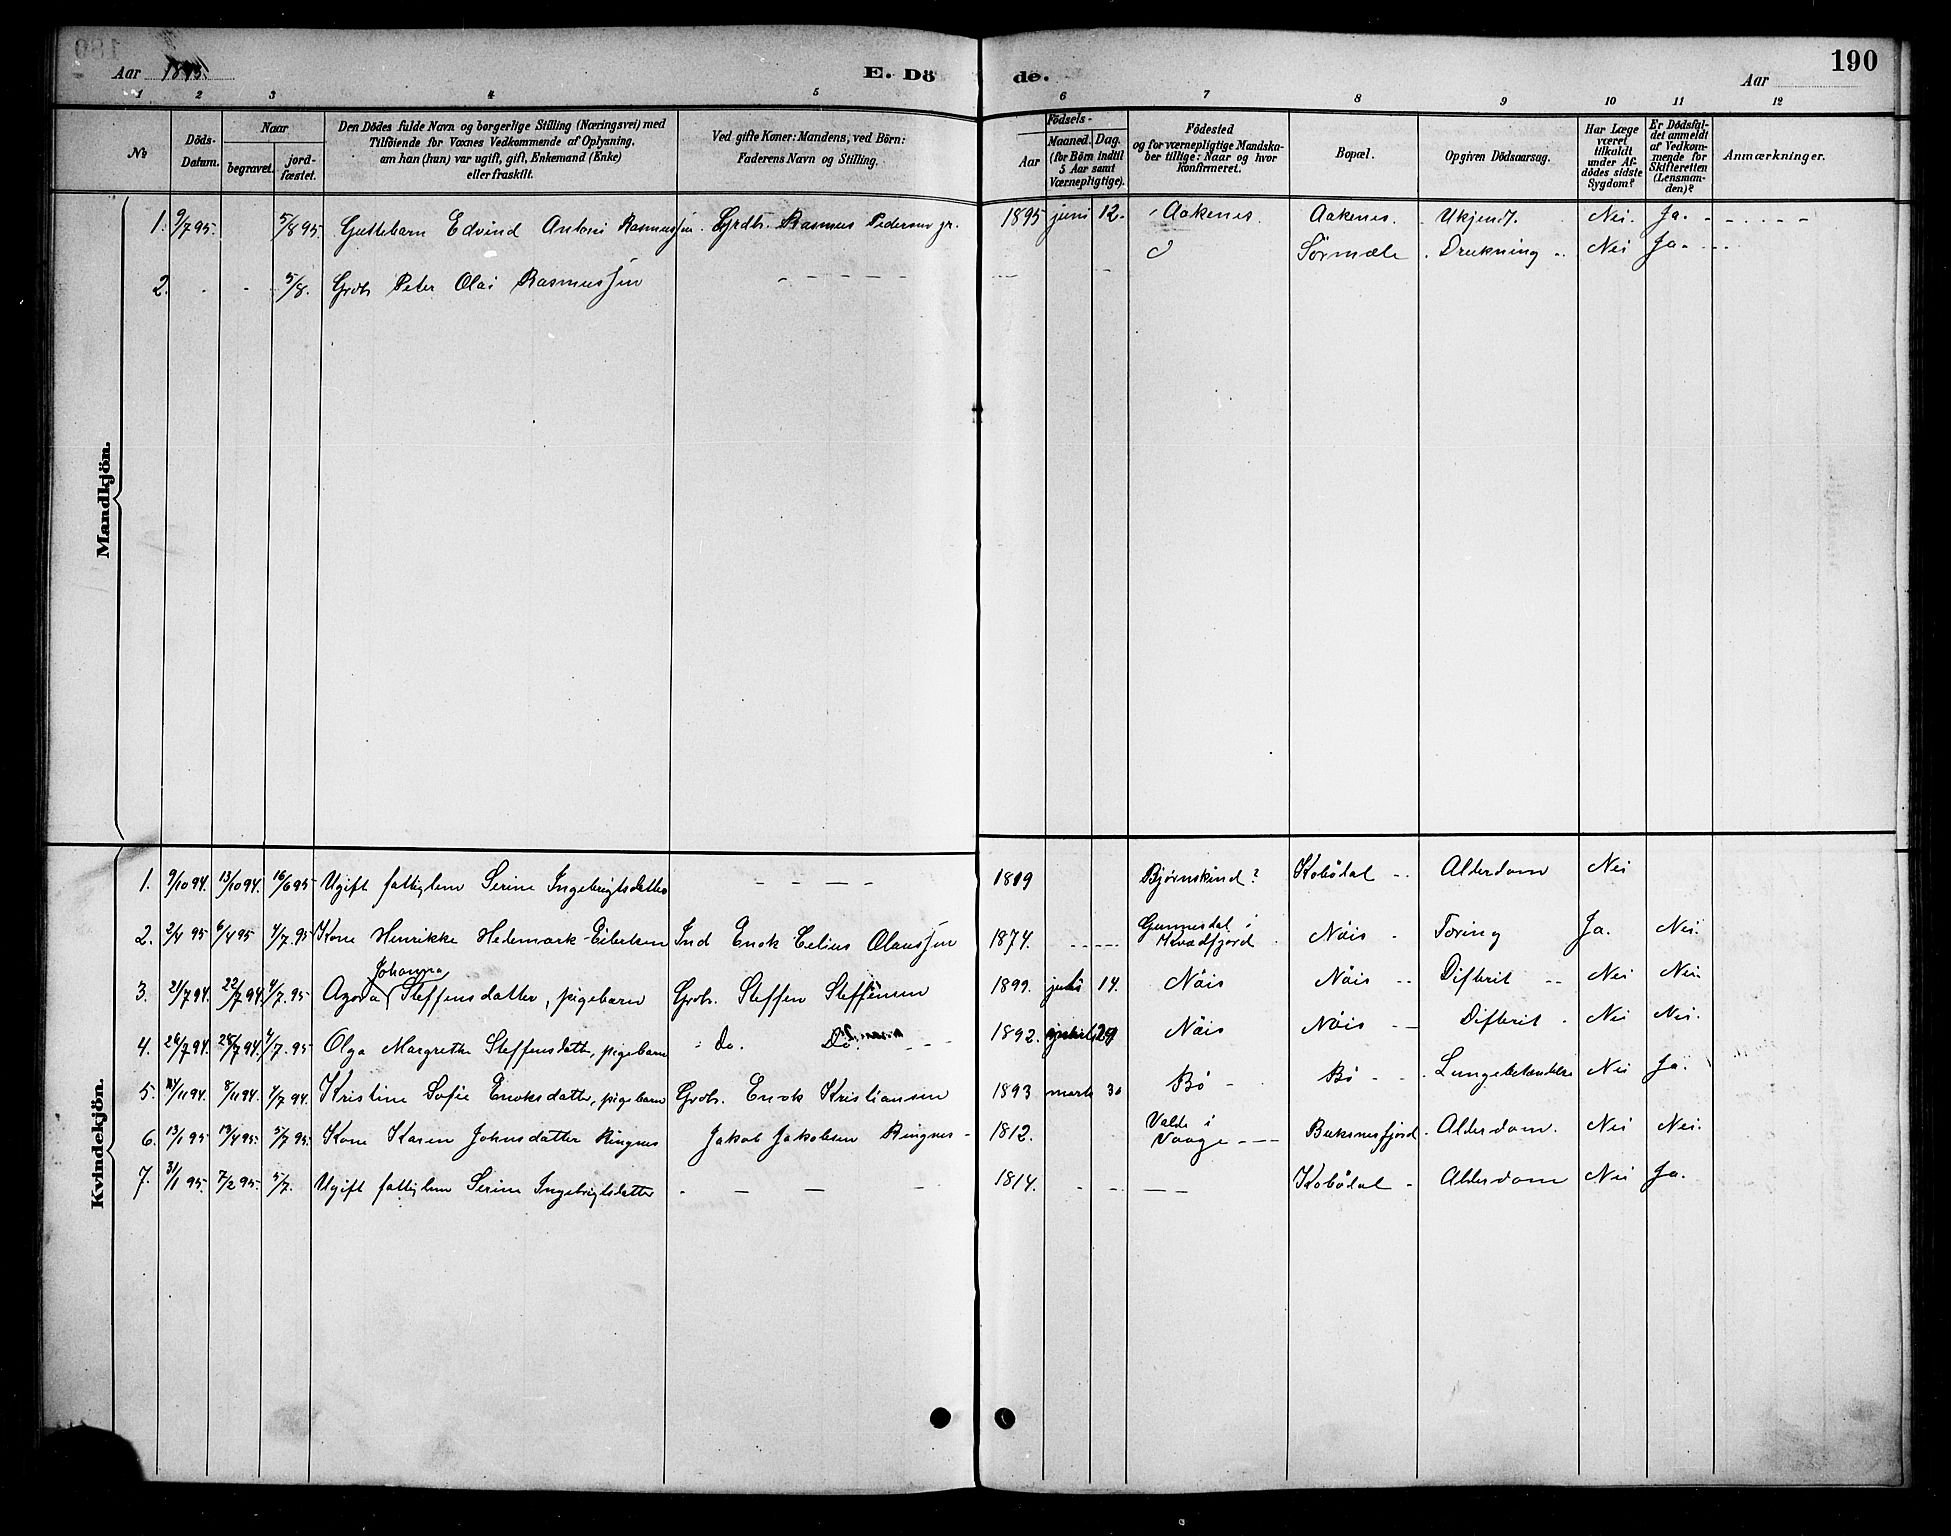 Aar 1895. E. Dö de. Aar 190
1 2 3 4 5 6 7 8 9 10 11 12
No
Döds-Datum.
Naar
begravet.
jord-fæstet.
Den Dödes fulde Navn og borgerlige Stilling (Næringsvei) med
Tilföiende for Voxnes Vedkommende af Oplysning,
om han (hun) var ugift, gift, Enkemand (Enke)
eller fraskilt.
Ved gifte Koner: Mandens, ved Börn:
Faderens Navn og Stilling.
Födsels-
Aar
Maaned. Dag.
(for Börn indtil
5 Aar samt
Værnepligtige).
Födested
og for værnepligtige Mandska-
ber tillige: Naar og hvor
konfirmeret.
Bopæl.
Opgiven Dödsaarsag.
Har Læge
været
tilkaldt
under Af-
dödes sidste
Sygdom?
Er Dödsfal-
det anmeldt
af Vedkom-
mende for
Skifteretten
(Lensman-
den)?
Anmærkninger.
Mandkjön.
1. 9/7 95 5/8 95. Guttebarn Edvind Antoni Rasmussen. Grdbr. Rasmus Pedersen 1895 juni 12. Aakenes. Aakenes. Ukjendt. Nei. Ja. - - - - -
2. - - 5/8. Grdbr Peter Olai Rasmussen - - - - - - Sørmæle. Drukning .. Nei Ja. - - -
Kvindekjön.
1. 9/10 94. 13/10 94. 16/6 95 Ugift fattiglem Serine Ingebrigtsdatter - - - - 1819 Bjørnskind? Kobödal - - Alderdom Nei
2. 2/4 95 6/4 95 4/7. 95 Kone Henrikke Hedemark Eilertsen Ind Enok Celius Olaussen 1874. - - - - Gunnesdal i Kvædfjord. Nöis - Tæring Ja. Nei.
3. 21/7 94. 22/7 94. 4/7. 95 Johanna Steffensdatter, pigebarn Grdbr. Steffen Steffensen 1899. juli 14. Nöis Nöis - - Difterit - - Nei Nei
4. 26/7 94. 28/7 94. 4/7. 95 Olga Margrethe Steffensdatter, pigebarn Do. Do. - - - 1892. 29 Nöis Nöis - - Difterit - Nei Nei.
5. 4/11 94. 8/11 94. 4/7 94. Kristine Sofie Enoksdatter, pigebarn Grdbr. Enok Kristiansen 1893 marts 30 Bö - Bö - - Lungebetændelse Nei Ja.
6. 13/1 95 19/4 95. 5/7 95. Kone Karen Johnsdatter Ringnes Jakob Jakobsen Ringnes - 1812. Valde i Vaage - - - Buksnesfjord. Alderdom. Nei Nei.
7. 31/1 95. 7/2 95. 5/7. Ugift fattiglem Serine Ingebrigtsdatter - - - - 1814. - - - - Kobödal - Alderdom Nei Ja.